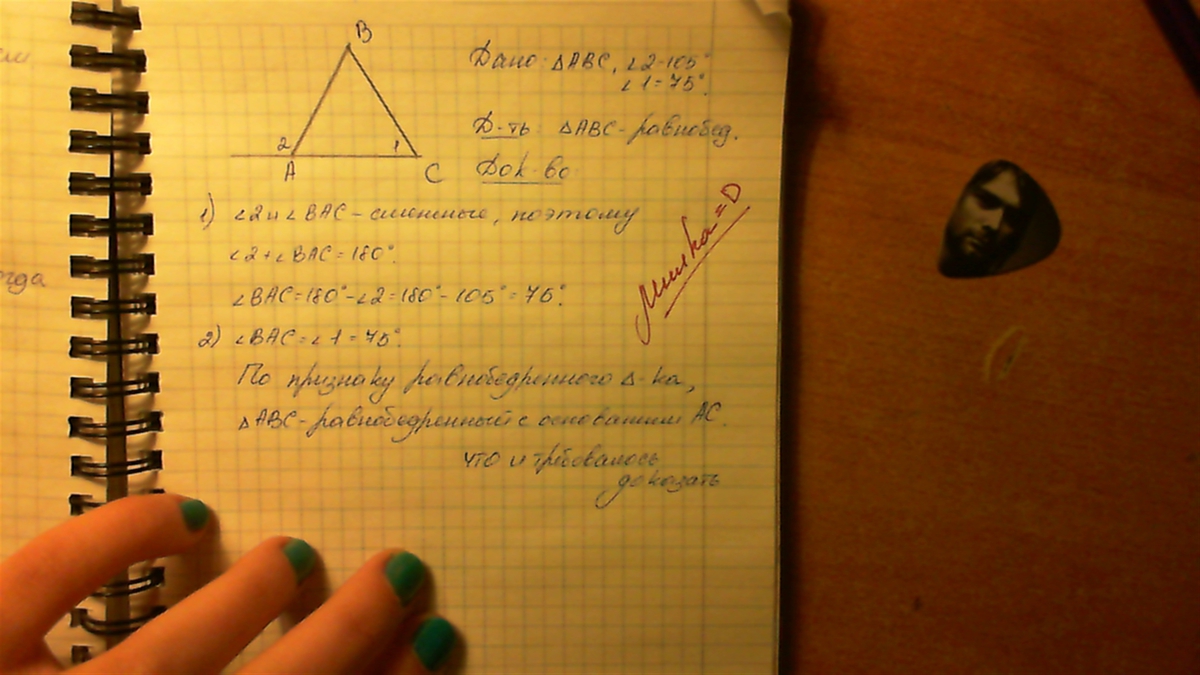 ом
B
2
1
A
C
Дано: △ABC, ∠2=105°
∠1=75°.
Д-ть: △ABC-равнобед.
Док-во:
1) ∠2 и ∠BAC-смежные, поэтому
∠2+∠BAC=180°.
огда
∠BAC=180°-∠2=180°-105°=75°.
2) ∠BAC=∠1=75°.
По признаку равнобедренного △-ка,
△ABC-равнобедренный с основанием AC.
что и требовалось
доказать
Мишка=D